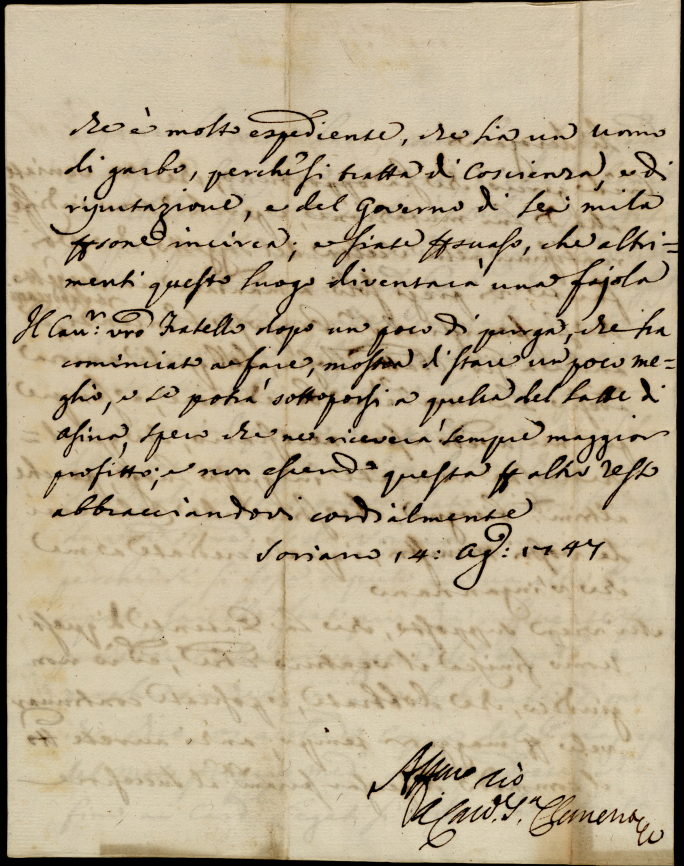 che è molto espediente, che sia un uomo
di garbo, perche si tratta di Coscienza, e di
riputazione, e del Governo di sei mila
psone incirca; e siate psuaso, che altri=
menti questo luogo diventarà una fajola
Il Cau.r vro Fratello dopo un poco di purga, che ha
cominciato a fare, mostra di stare un poco me=
glio, e se potrà sottoporsi a quella del latte di
asina, spero che ne riceverà sempre maggior
profitto; e non essendo questa p altro resto
abbracciandovi cordialmente
Soriano 14: Ag: 1747
Affmo zio
il Card. S. Clemente